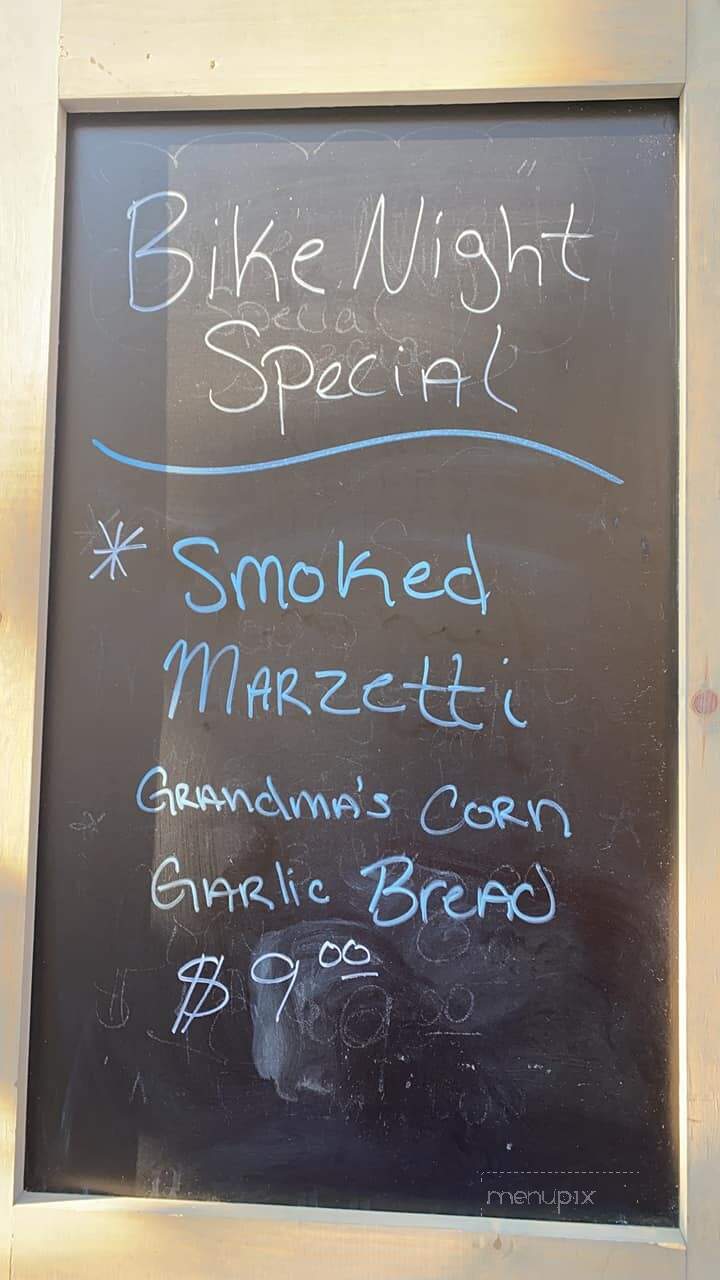 Bike Night
Special
* Smoked
Marzetti
Grandma's Corn
Garlic Bread
$9.00
menupix